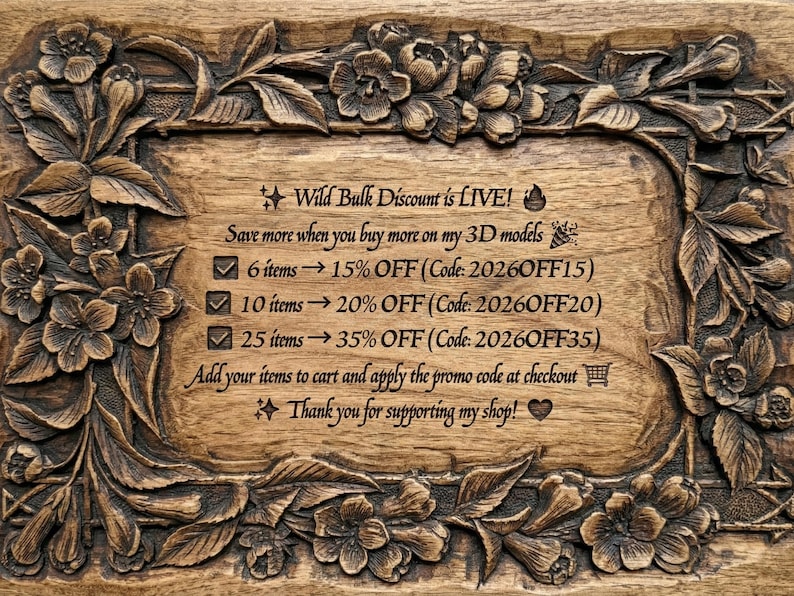 ✨ Wild Bulk Discount is LIVE! 🔥
Save more when you buy more on my 3D models 🎉
☑ 6 items → 15% OFF (Code: 2026OFF15)
☑ 10 items → 20% OFF (Code: 2026OFF20)
☑ 25 items → 35% OFF (Code: 2026OFF35)
Add your items to cart and apply the promo code at checkout 🛒
✨ Thank you for supporting my shop! ❤